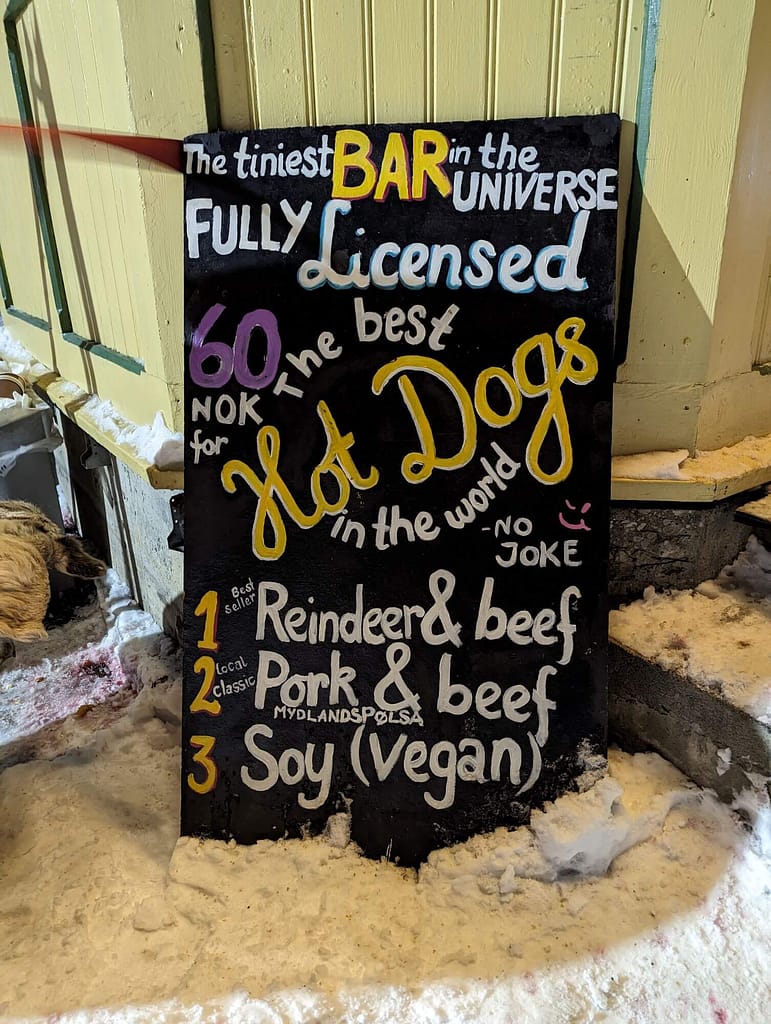 The tiniest BAR in the UNIVERSE
FULLY Licensed
60 NOK for
The best
Hot Dogs
in the world
-NO JOKE
1 Best seller Reindeer & beef
2 local classic Pork & beef
MYDLANDSPØLSA
3 Soy (vegan)